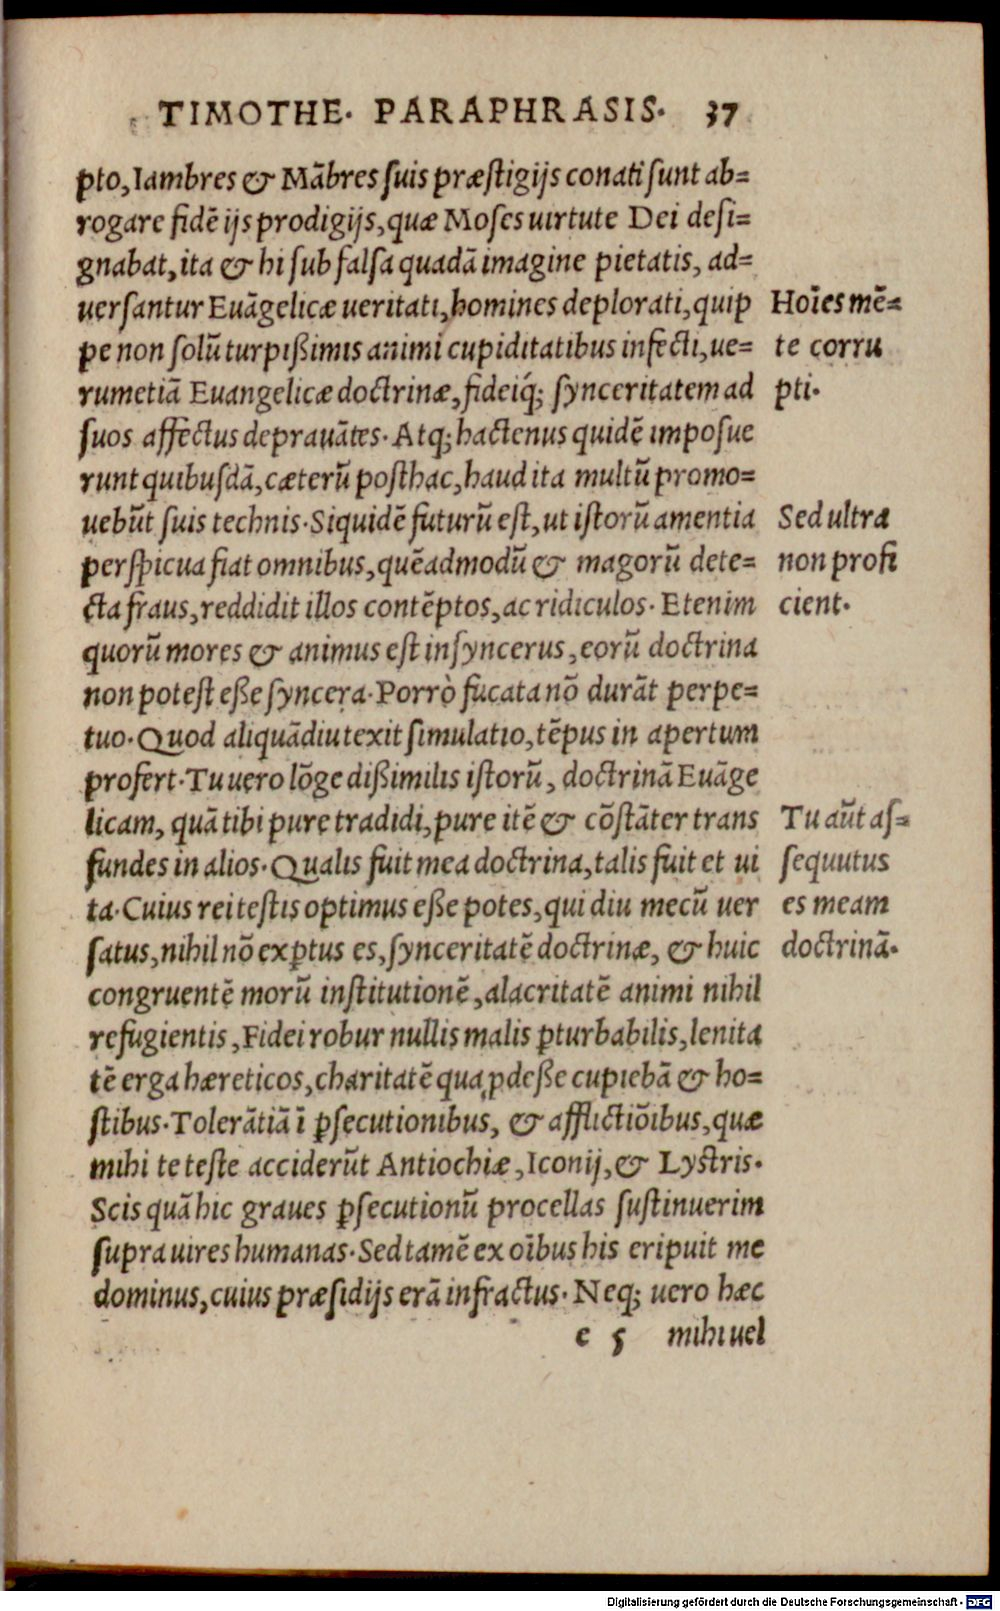 TIMOTHE. PARAPHRASIS. 37
pto, Iambres & Mābres suis præstigijs conati sunt ab=
rogare fidē ijs prodigijs, quæ Moses uirtute Dei desi=
gnabat, ita & hi sub falsa quadā imagine pietatis, ad=
uersantur Euāgelicæ ueritati, homines deplorati, quip
pe non solū turpißimis animi cupiditatibus infecti, ue=
rumetiā Euangelicæ doctrinæ, fideiq́; synceritatem ad
suos affectus deprauātes. Atq; hactenus quidē imposue
runt quibusdā, cæterū posthac, haud ita multū promo=
uebūt suis technis. Siquidē futurū est, ut istorū amentia
perspicua fiat omnibus, quēadmodū & magorū dete=
cta fraus, reddidit illos contēptos, ac ridiculos. Etenim
quorū mores & animus est insyncerus, eorū doctrina
non potest eße syncera. Porrò fucata nō durāt perpe=
tuo. Quod aliquādiu texit simulatio, tēpus in apertum
profert. Tu uero lōge dißimilis istorū, doctrinā Euāge
licam, quā tibi pure tradidi, pure itē & cōstāter trans
fundes in alios. Qualis fuit mea doctrina, talis fuit et ui
ta. Cuius rei testis optimus eße potes, qui diu mecū uer
satus, nihil nō exꝑtus es, synceritatē doctrinæ, & huic
congruentē morū institutionē, alacritatē animi nihil
refugientis, Fidei robur nullis malis ꝑturbabilis, lenita
tē erga hæreticos, charitatē qua ꝓdeße cupiebā & ho=
stibus. Tolerātiā ī ꝑsecutionibus, & afflictiōibus, quæ
mihi te teste acciderūt Antiochiæ, Iconij, & Lystris.
Scis quā hic graues ꝑsecutionū procellas sustinuerim
supra uires humanas. Sed tamē ex oībus his eripuit me
dominus, cuius præsidijs erā infractus. Neq; uero hæc
e 5 mihi uel
Hoīes mē=
te corru
pti.
Sed ultra
non profi
cient.
Tu aūt as=
sequutus
es meam
doctrinā.
Digitalisierung gefördert durch die Deutsche Forschungsgemeinschaft - DFG